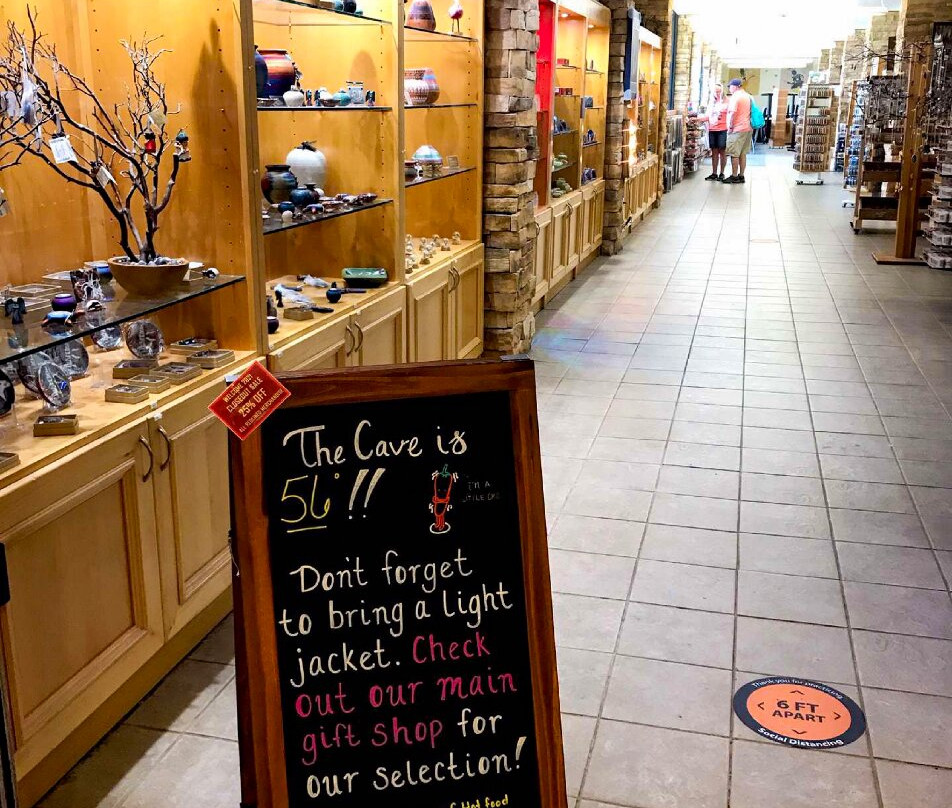 WELCOME 2021
CLOSEOUT SALE
25% OFF
The Cave is
56°!!
I'M A
LITTLE
Don't forget
to bring a light
jacket. Check
out our main
gift shop for
our selection!
& Hot food
Thank you for practicing
6 FT
APART
Social Distancing